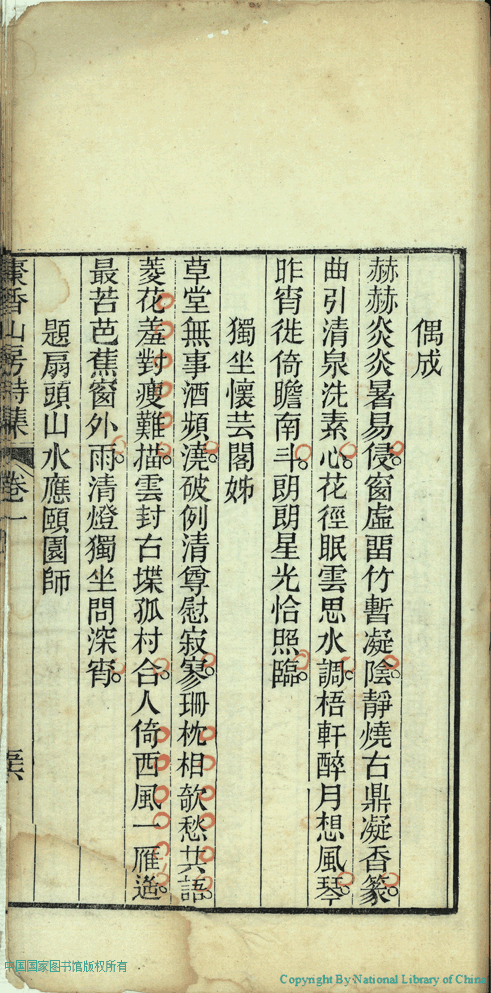 偶成
赫赫炎炎暑易侵窗虛畱竹暫凝陰靜燒古鼎凝香篆
曲引清泉洗素心花徑眠雲思水調梧軒醉月想風琴
昨宵徙倚瞻南斗朗朗星光恰照臨
獨坐懷芸閣姊
草堂無事酒頻澆破例清尊慰寂寥珊枕相欹愁共語
菱花羞對瘦難描雲封古堞孤村合人倚西風一雁遙
最苦芭蕉窗外雨清燈獨坐問深宵
題扇頭山水應頤園師
棗香山房詩集 卷一
中国国家图书馆版权所有
Copyright By National Library of China